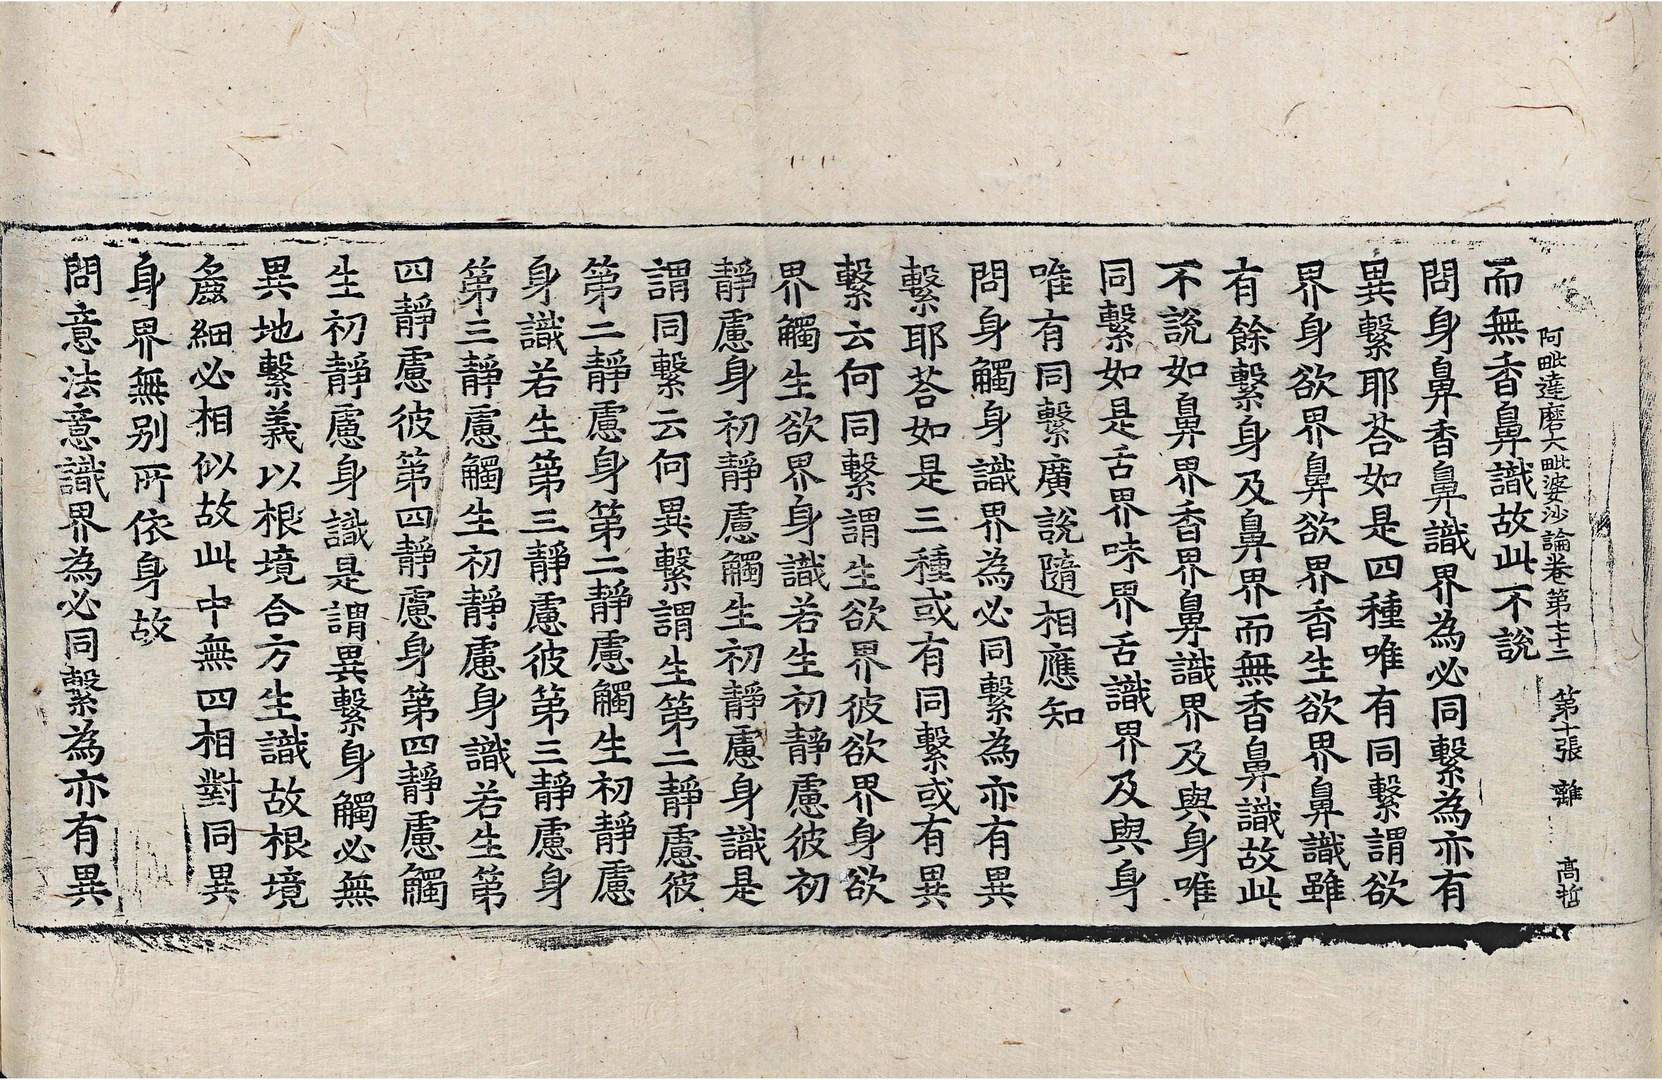 阿毗達磨大毗婆沙論卷第七十二　第十張　離　高哲
而無香鼻識故此不說
問身鼻香鼻識界為必同繫為亦有
異繫耶荅如是四種唯有同繫謂欲
界身欲界鼻欲界香生欲界鼻識雖
有餘繫身及鼻界而無香鼻識故此
不說如鼻界香界鼻識界及與身唯
同繫如是舌界味界舌識界及與身
唯有同繫廣說隨相應知
問身觸身識界為必同繫為亦有異
繫耶荅如是三種或有同繫或有異
繫云何同繫謂生欲界彼欲界身欲
界觸生欲界身識若生初靜慮彼初
靜慮身初靜慮觸生初靜慮身識是
謂同繫云何異繫謂生第二靜慮彼
第二靜慮身第二靜慮觸生初靜慮
身識若生第三靜慮彼第三靜慮身
第三靜慮觸生初靜慮身識若生第
四靜慮彼第四靜慮身第四靜慮觸
生初靜慮身識是謂異繫身觸必無
異地繫義以根境合方生識故根境
麁細必相似故此中無四相對同異
身界無別所依身故
問意法意識界為必同繫為亦有異